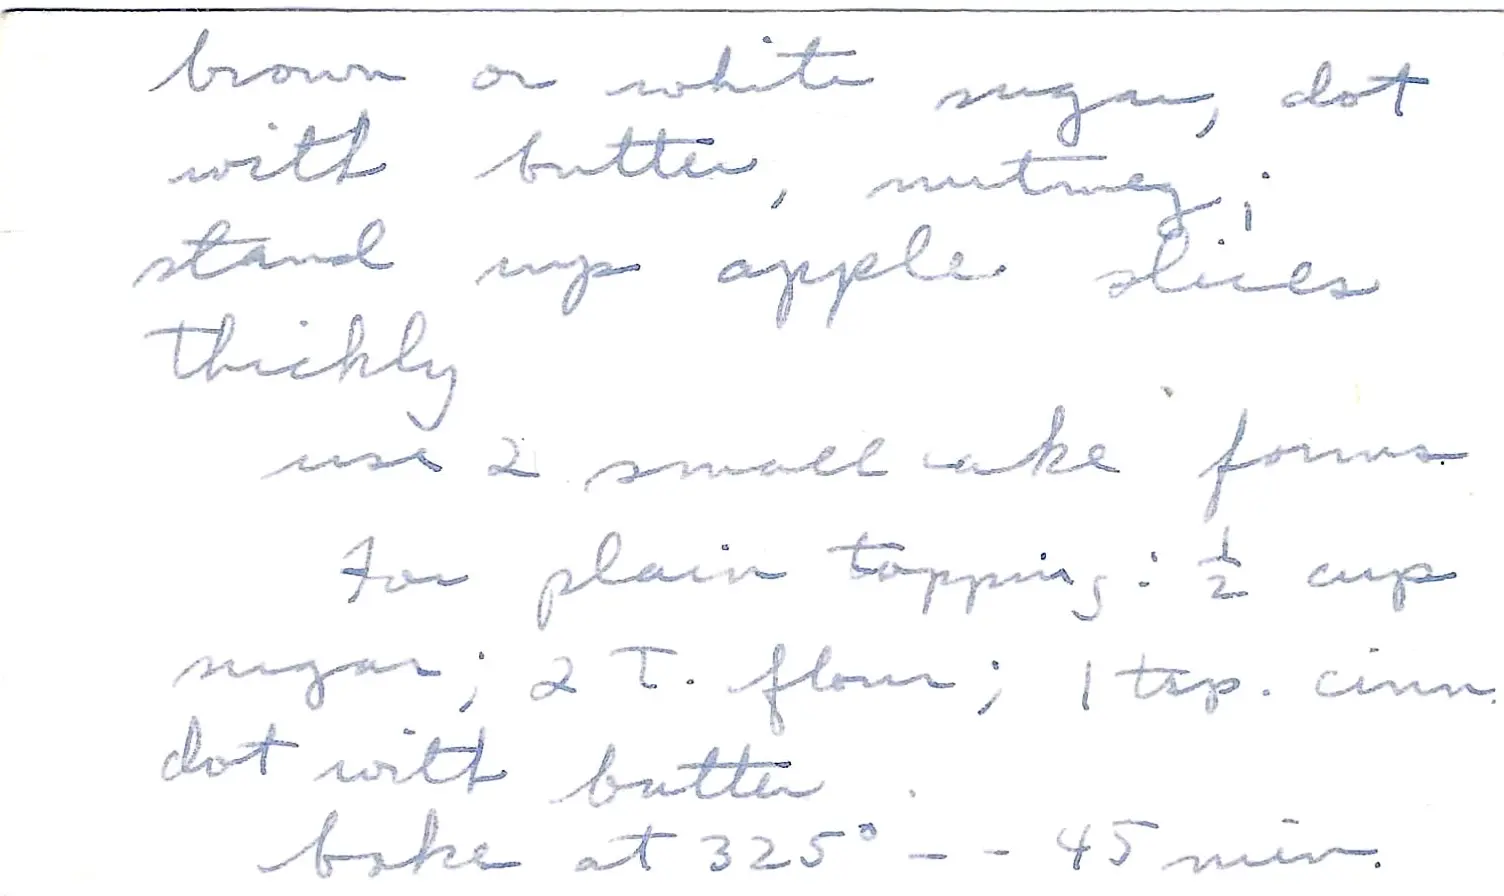 brown or white sugar, dot
with butter, nutmeg;
stand up apple slices
thickly
use 2 small cake forms.
For plain topping: 1/2 cup
sugar; 2 T. flour; 1 tsp. cinn.
dot with butter.
bake at 325° - - 45 min.